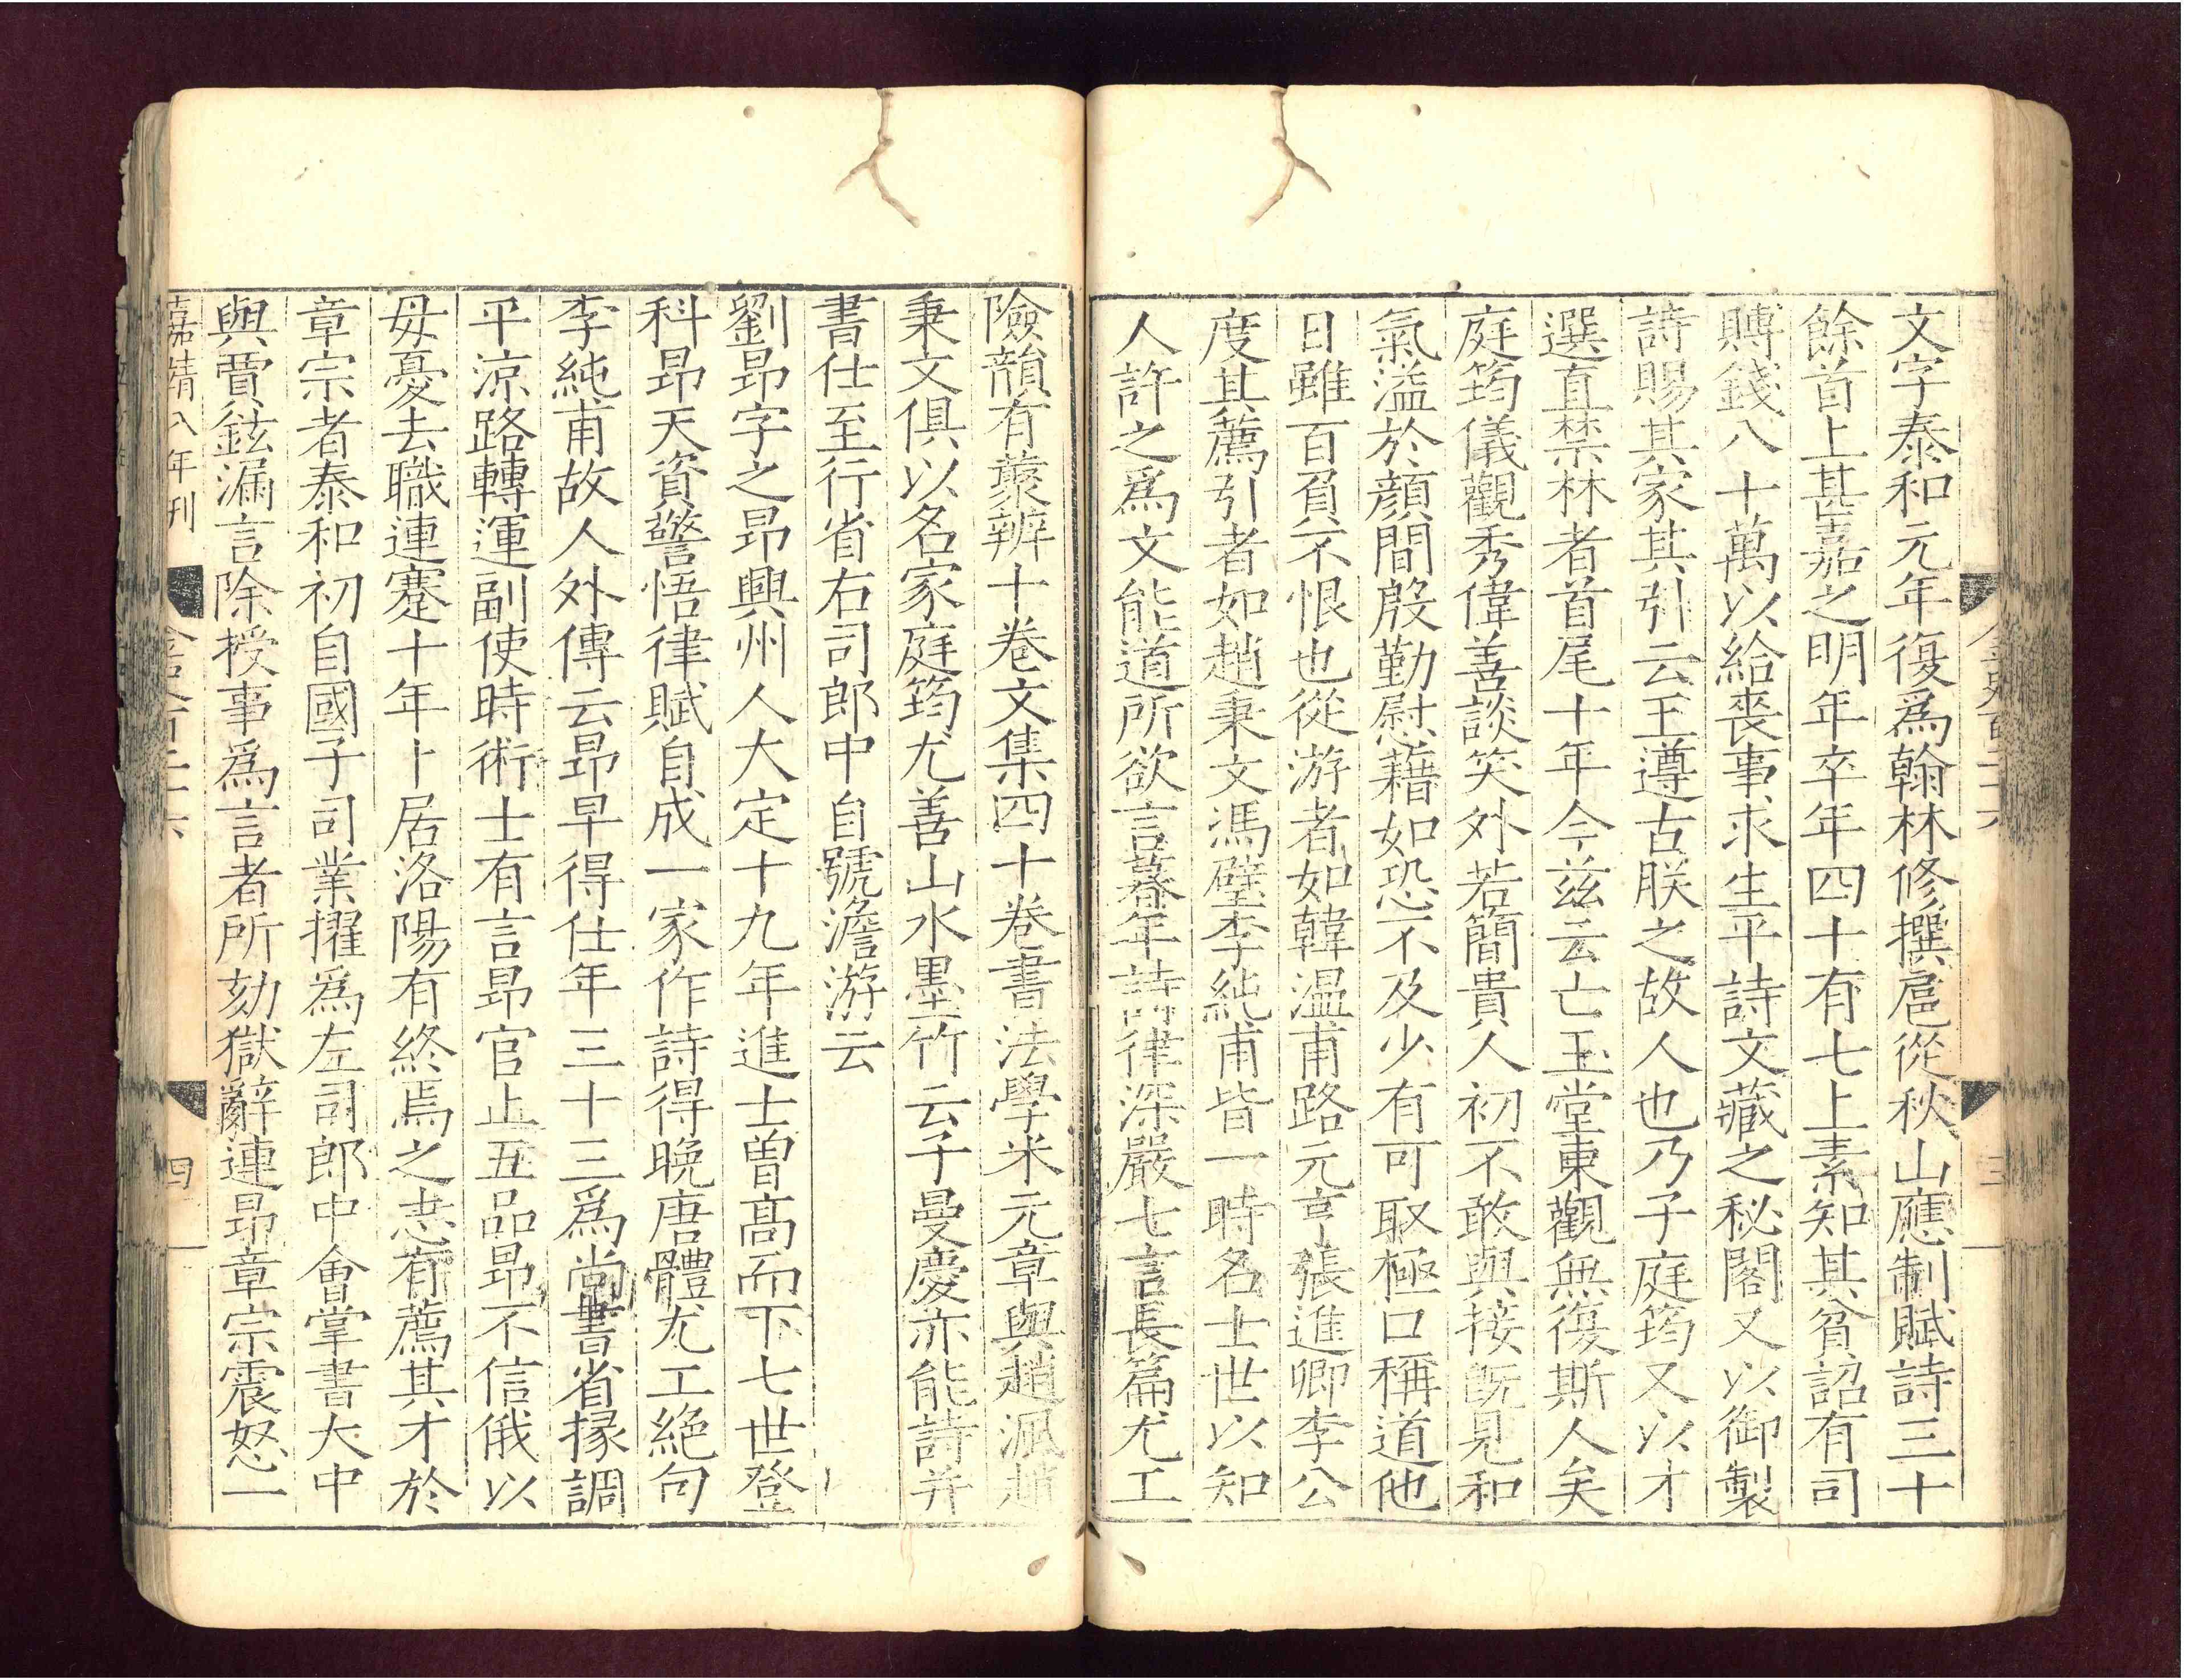 文字泰和元年復爲翰林修撰扈從秋山應制賦詩三十
餘首上甚嘉之明年卒年四十有七上素知其貧詔有司
賻錢八十萬以給喪事求生平詩文藏之秘閣又以御製
詩賜其家其引云王遵古朕之故人也乃子庭筠又以才
選直禁林者首尾十年今茲云亡玉堂東觀無復斯人矣
庭筠儀觀秀偉善談笑外若簡貴人初不敢與接旣見和
氣溢於顔間殷勤慰藉如恐不及少有可取極口稱道他
日雖百負不恨也從游者如韓温甫路元亨張進卿李公
度其薦引者如趙秉文馮璧李純甫皆一時名士世以知
人許之爲文能道所欲言暮年詩律深嚴七言長篇尤工
險韻有藂辨十卷文集四十卷書法學米元章與趙渢趙
秉文俱以名家庭筠尤善山水墨竹云子曼慶亦能詩并
書仕至行省右司郎中自號澹游云
劉昻字之昻興州人大定十九年進士曽髙而下七世登
科昻天資警悟律賦自成一家作詩得晚唐體尤工絕句
李純甫故人外傳云昻早得仕年三十三爲尚書省掾調
平凉路轉運副使時術士有言昻官止五品昻不信俄以
母憂去職連蹇十年卜居洛陽有終焉之志有薦其才於
章宗者泰和初自國子司業擢爲左司郎中會掌書大中
與賈鉉漏言除授事爲言者所劾獄辭連昻章宗震怒一
嘉靖八年刊
金史百二十六
四
金史百二十六
三